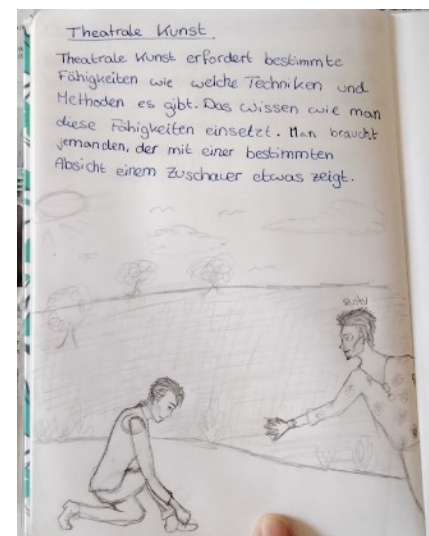 Theatrale Kunst
Theatrale Kunst erfordert bestimmte
Fähigkeiten wie welche Techniken und
Methoden es gibt. Das wissen wie man
diese Fähigkeiten einsetzt. Man braucht
jemanden, der mit einer bestimmten
Absicht einem Zuschauer etwas zeigt.